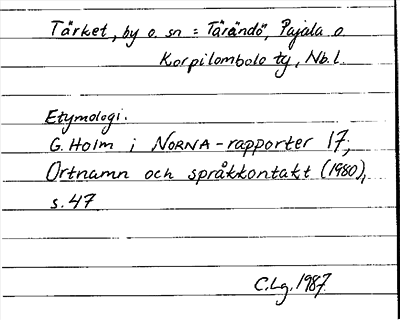 Tärket, by o. sn = Tärändö, Pajala o.
Korpilombolo ty, Nb.l.
Etymologi.
G. Holm i NORNA-rapporter 17;
Ortnamn och språkkontakt (1980),
s. 47
C.Lg. 1987